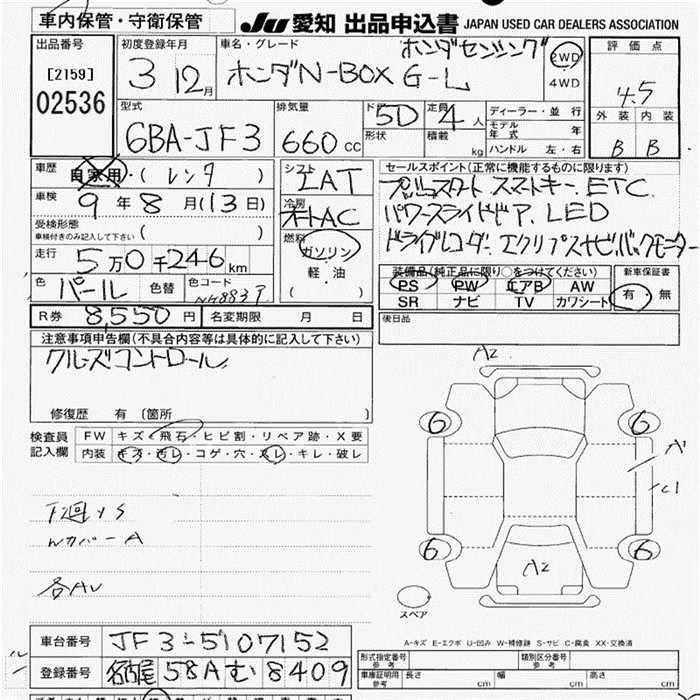 車内保管・守衛保管
JU 愛知 出品申込書 JAPAN USED CAR DEALERS ASSOCIATION
出品番号
[2159]
02536
初度登録年月
3 12月
車名・グレード
ホンダセンシング
ホンダN-BOX G-L
2WD
4WD
評価点
4.5
外装 内装
B B
型式
6BA-JF3
排気量
660 cc
ドア 5D
形状
定員 4人
積載 kg
ディーラー・並行
モデル年式 年
ハンドル 左・右
車歴
自家用・(レンタ)
車検 9年8月(13日)
受検形態
車検付きのみ記入して下さい ( )
走行 5万0千246km
色 パール 色替
色コード NH883P
シフト IAT
冷房 オートAC
燃料
ガソリン
軽・油
( )
セールスポイント(正常に機能するものに限ります)
プッシュスタート スマートキー. ETC.
パワースライドドア. LED
ドライブレコーダー. エクリプスナビ.バックモニター
装備品(純正品に限り○をつけてください)
PS PW エアB AW
SR ナビ TV カワシート
新車保証書
有・無
後日品
R券 8,550円 名変期限 月 日
注意事項申告欄(不具合内容等は具体的に記入して下さい)
クルーズコントロール
修復歴 有 〔箇所 〕
検査員
記入欄
FW キズ・飛石・ヒビ割・リペア跡・X要
内装 キズ・汚レ・コゲ・穴・スレ・キレ・破レ
下廻サS
WカバーA
各AU
A2
6 6
A1
C1
6 6
A2
スペア
A-キズ E-エクボ U-凹み W-補修跡 S-サビ C-腐食 XX-交換済
車台番号 JF3-5107152
登録番号 名古屋 58A む 8409
形式指定番号
参考
類別区分番号
参考
車庫証明用
参考
長さ cm 幅 cm 高さ cm